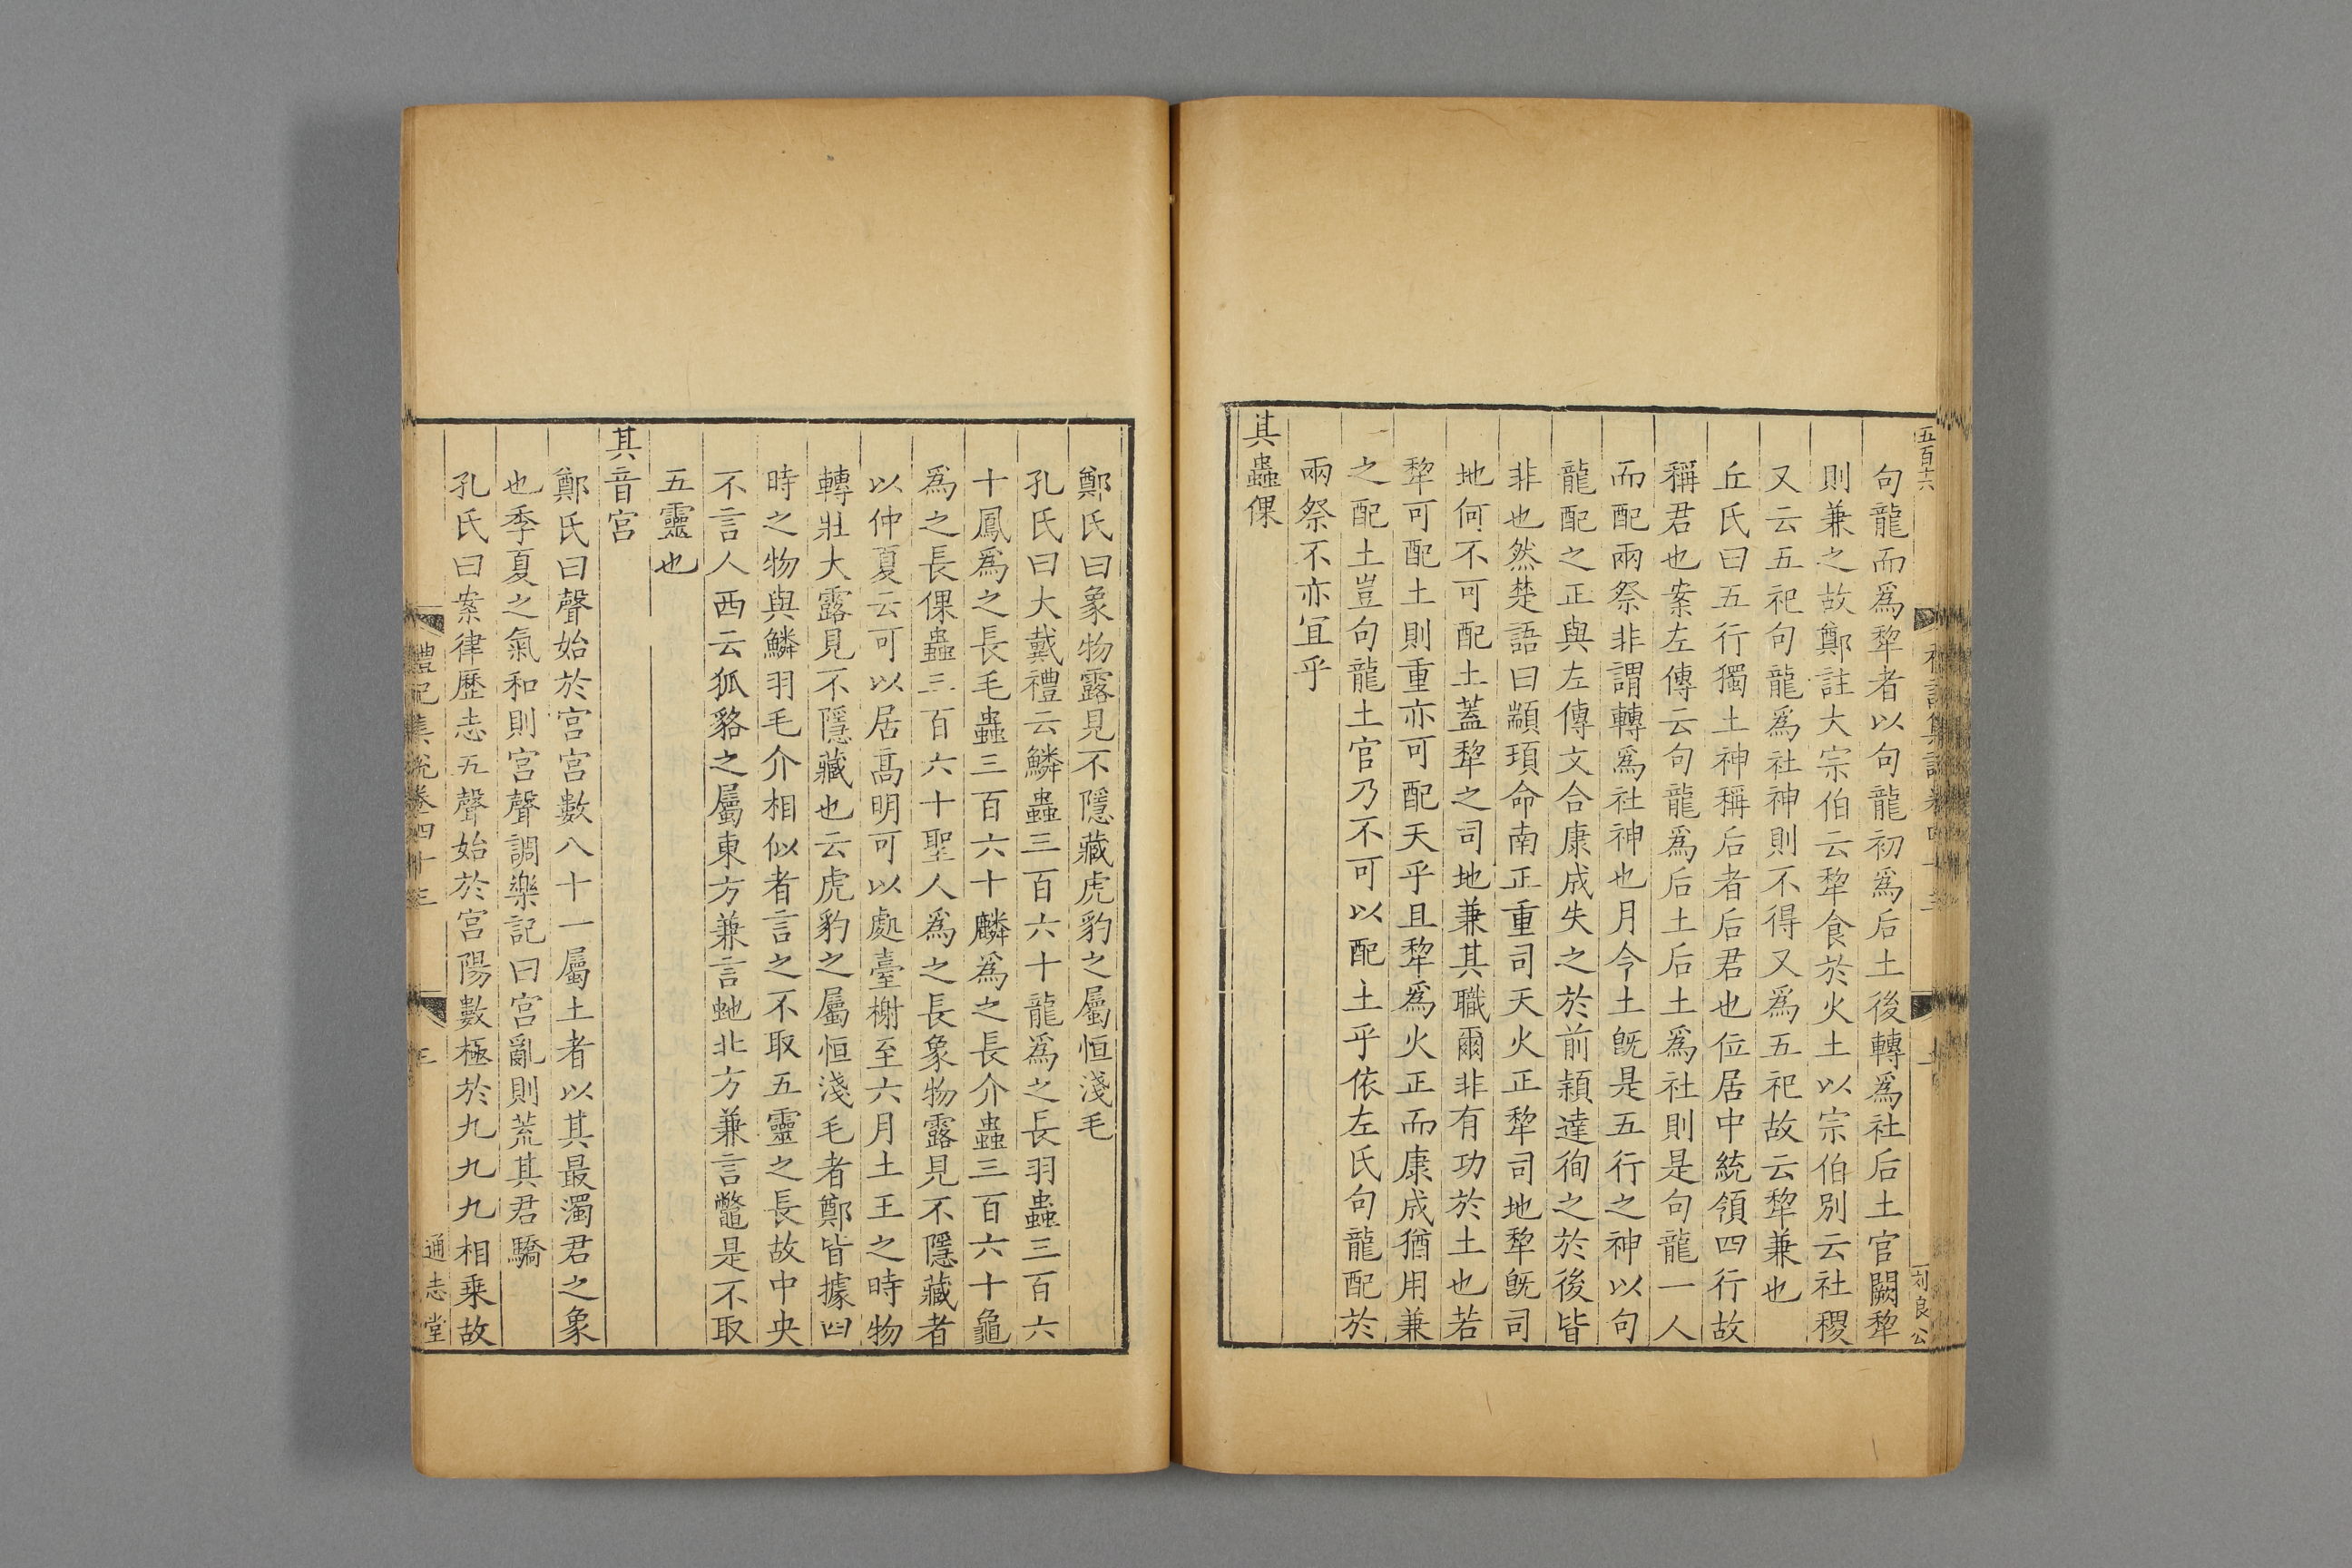 五百十六
句龍而爲犂者以句龍初爲后土後轉爲社后土官闕犂
則兼之故鄭註大宗伯云犂食於火土以宗伯別云社稷
又云五祀句龍爲社神則不得又爲五祀故云犂兼也
丘氏曰五行獨土神稱后者后君也位居中統領四行故
稱君也案左傳云句龍爲后土后土爲社則是句龍一人
而配兩祭非謂轉爲社神也月令土旣是五行之神以句
龍配之正與左傳文合康成失之於前穎達徇之於後皆
非也然楚語曰顓頊命南正重司天火正犂司地犂旣司
地何不可配土蓋犂之司地兼其職爾非有功於土也若
犂可配土則重亦可配天乎且犂爲火正而康成猶用兼
之配土豈句龍土官乃不可以配土乎依左氏句龍配於
兩祭不亦宜乎
其蟲倮
鄭氏曰象物露見不隱藏虎豹之屬恒淺毛
孔氏曰大戴禮云鱗蟲三百六十龍爲之長羽蟲三百六
十鳳爲之長毛蟲三百六十麟爲之長介蟲三百六十龜
爲之長倮蟲三百六十聖人爲之長象物露見不隱藏者
以仲夏云可以居高明可以處臺榭至六月土王之時物
轉壯大露見不隱藏也云虎豹之屬恒淺毛者鄭皆據四
時之物與鱗羽毛介相似者言之不取五靈之長故中央
不言人西云狐貉之屬東方兼言虵北方兼言鼈是不取
五靈也
其音宮
鄭氏曰聲始於宮宮數八十一屬土者以其最濁君之象
也季夏之氣和則宮聲調樂記曰宮亂則荒其君驕
孔氏曰案律歷志五聲始於宮陽數極於九九九相乘故
禮記集說卷四十三
通志堂